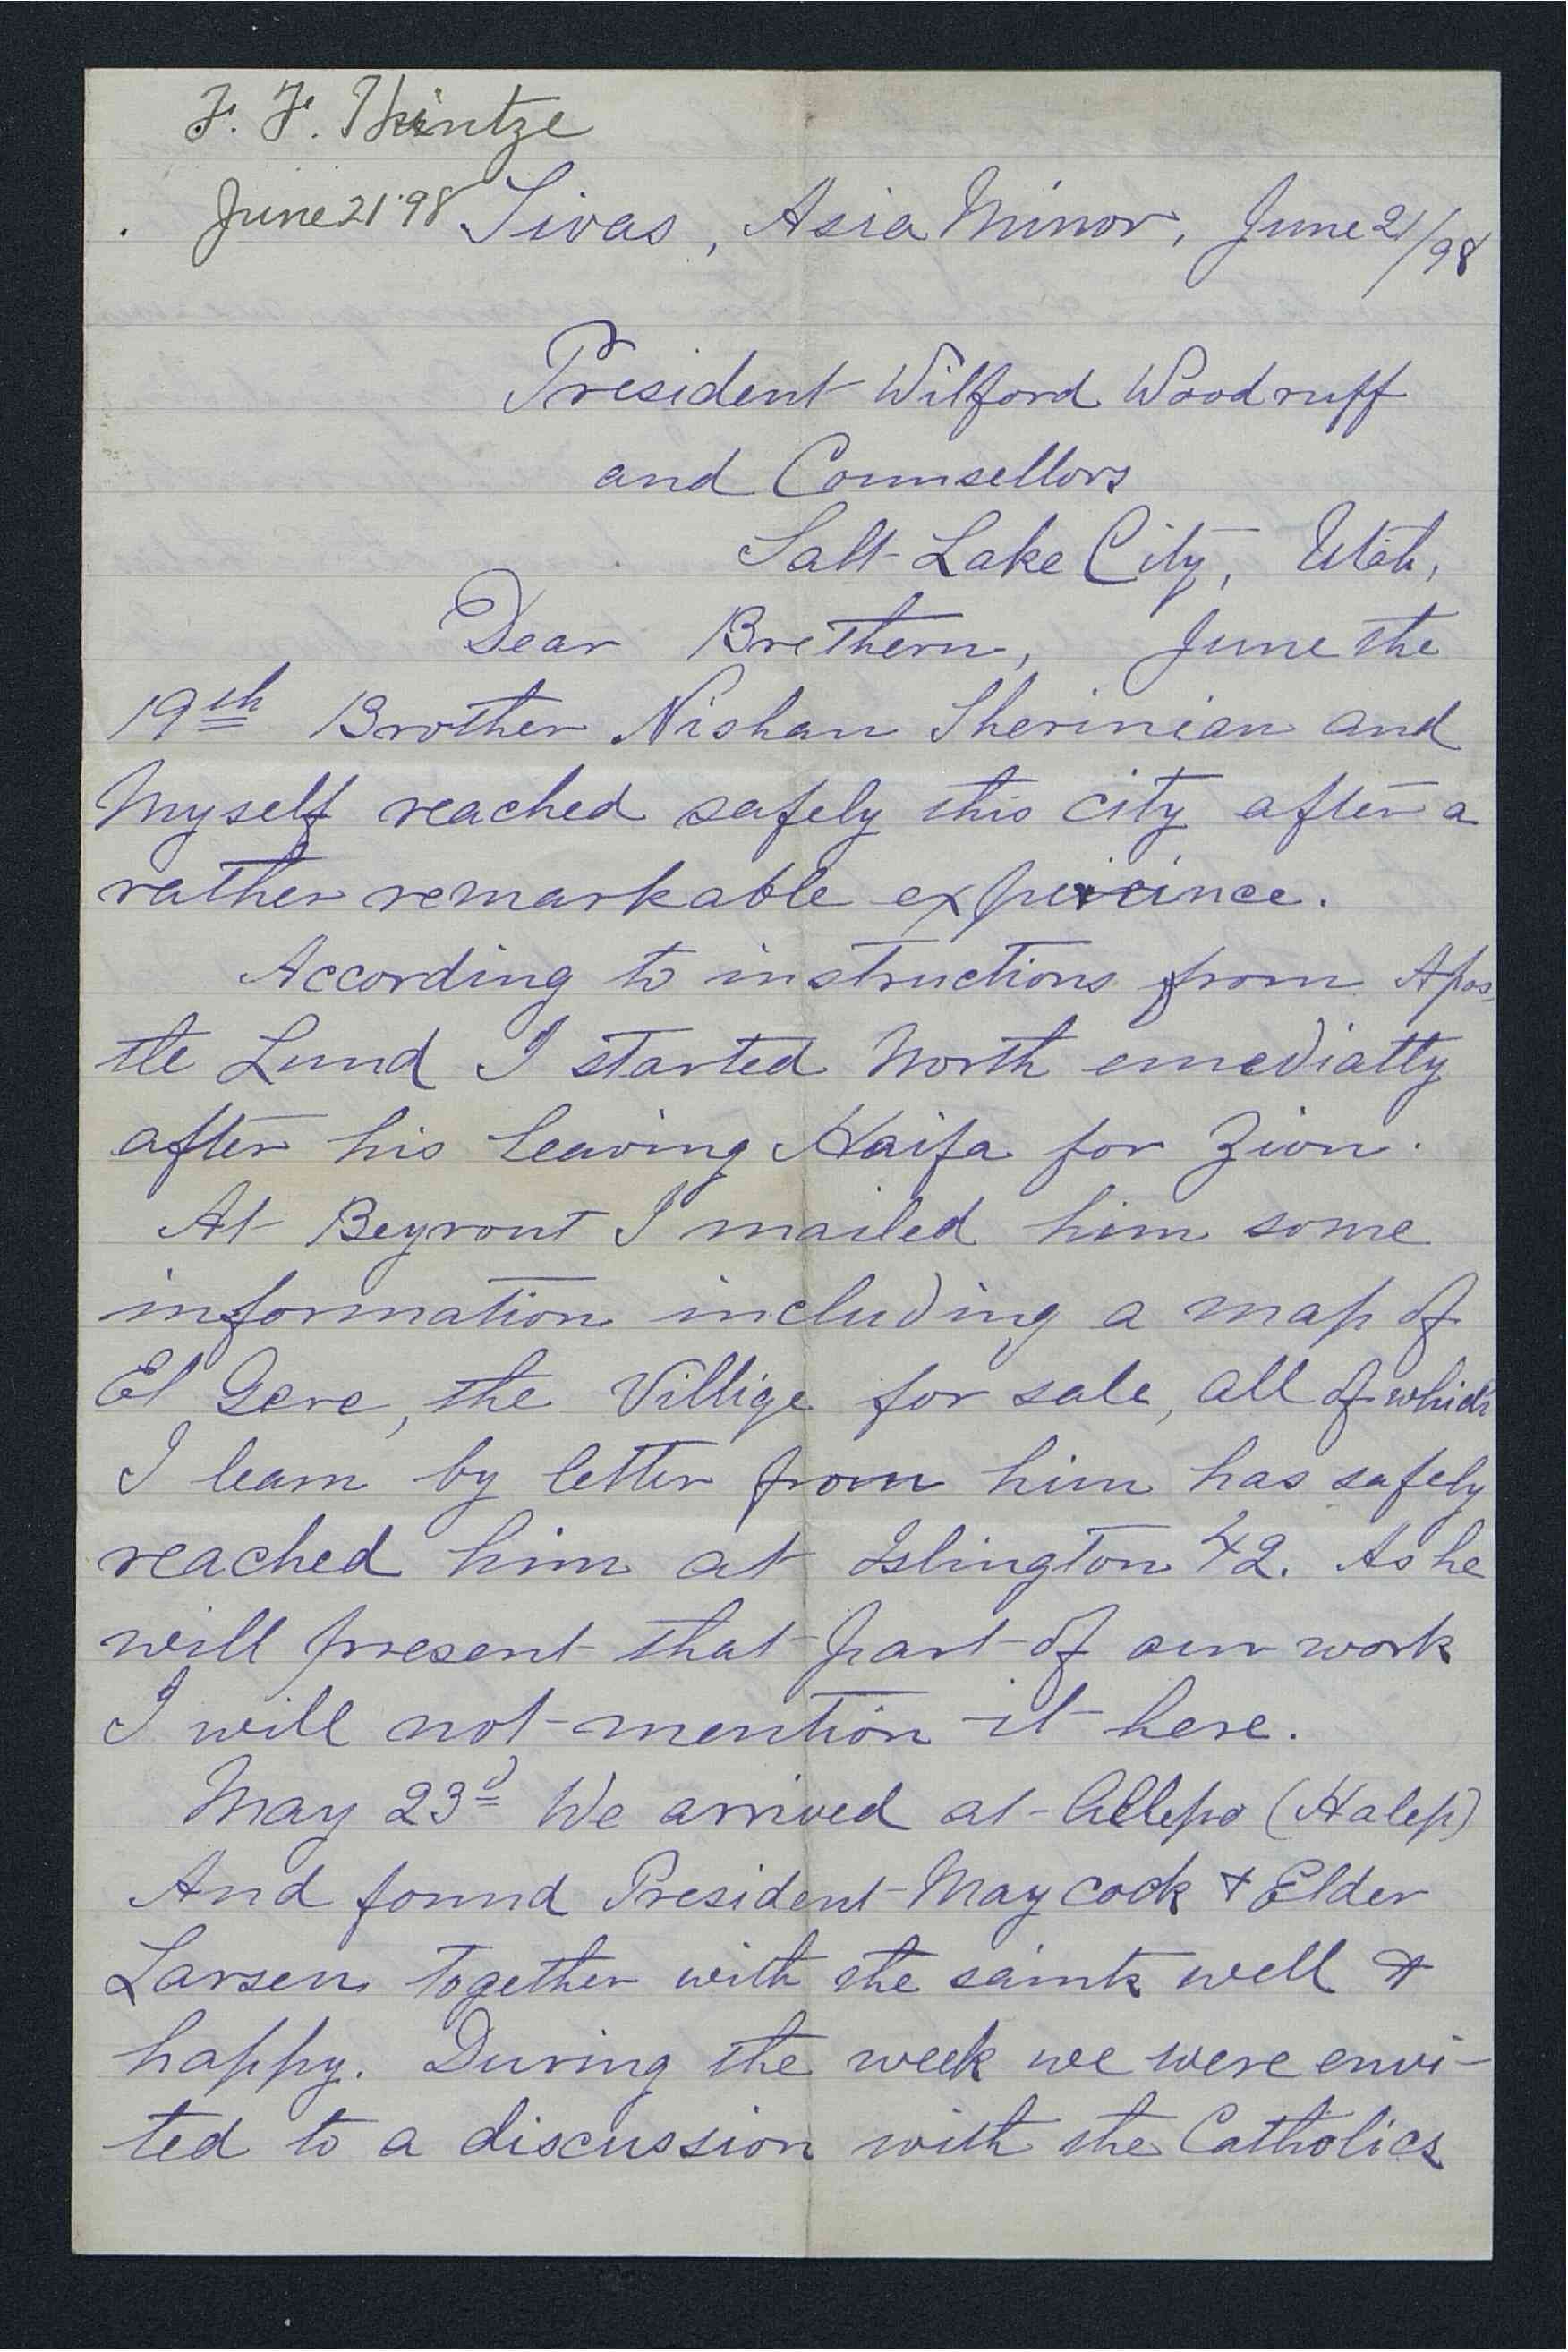 F. F. Hintze
June 21 '98 Sivas, Asia Minor, June 21/98
President Wilford Woodruff
and Counsellors
Salt Lake City, Utah,
Dear Brethern, June the
19th Brother Nishan Sherinian and
Myself reached safely this city after a
rather remarkable
According to instructions from Apos
tle Lund I started North emediatly
after his leaving Haifa for Zion.
At Beyrout I mailed him some
information including a map of
El Gere, the Villige for sale, all of which
I learn by letter from him has safely
reached him at Islington 42. As he
will present that part of our work
I will not mention it here.
May 23d We arrived at Allepo (Halep)
And found President Maycock & Elder
Larsen together with the saints well &
happy. During the week we were envi-
ted to a discussion with the Catholics